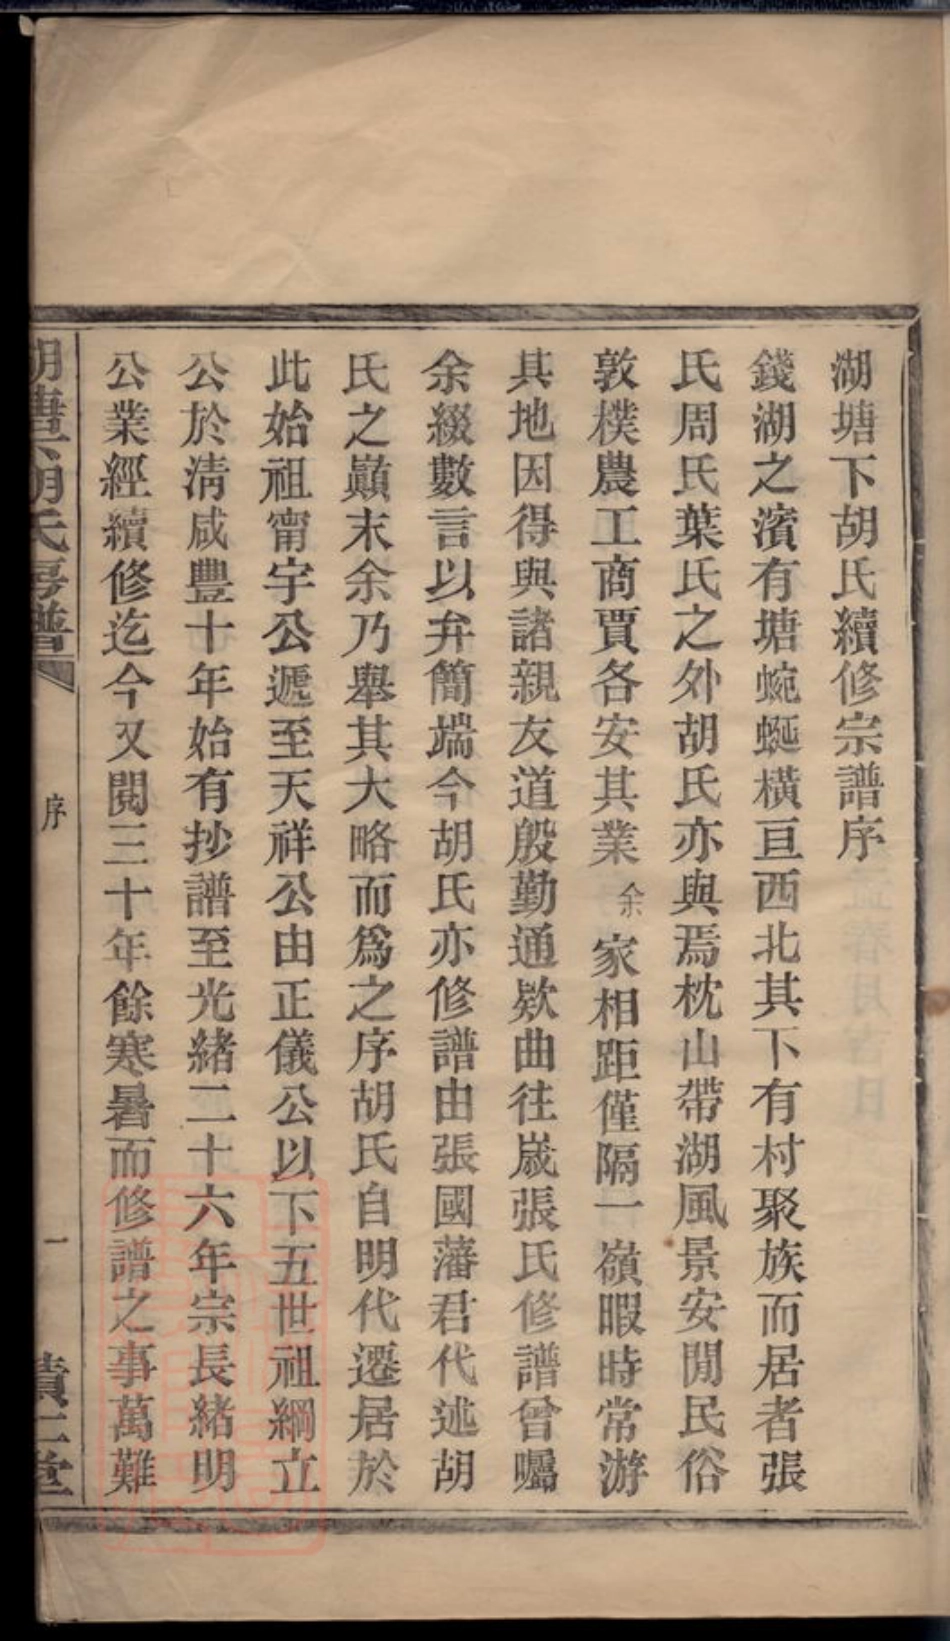 湖塘下胡氏續修宗譜序
錢湖之濱有塘蜿蜒橫亘西北其下有村聚族而居者張
氏周氏葉氏之外胡氏亦與焉枕山帶湖風景安閒民俗
敦樸農工商賈各安其業余家相距僅隔一嶺暇時常游
其地因得與諸親友道殷勤通欵曲往歲張氏修譜曾囑
余綴數言以弁簡端今胡氏亦修譜由張國藩君代述胡
氏之巔末余乃舉其大略而爲之序胡氏自明代遷居於
此始祖甯宇公遞至天祥公由正儀公以下五世祖綱立
公於清咸豐十年始有抄譜至光緒二十六年宗長緒明
公業經續修迄今又閱三十年餘寒暑而修譜之事萬難
胡氏房譜
序
一